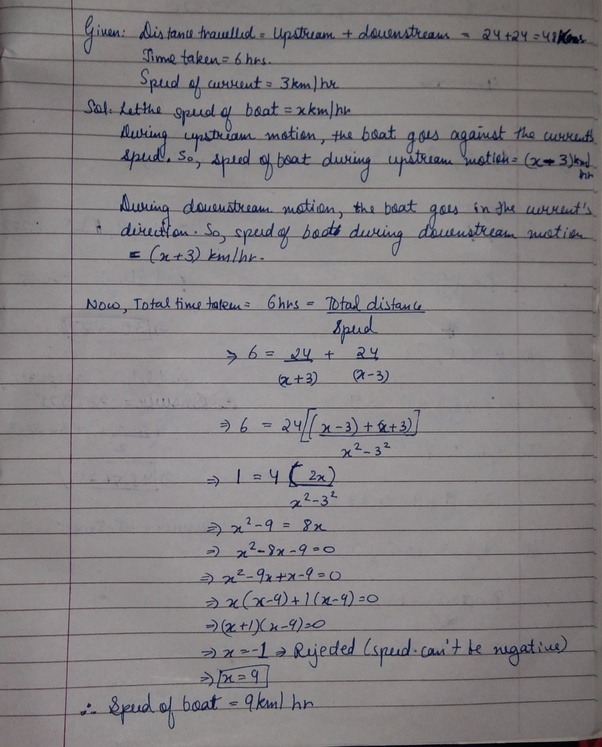 Given: Distance travelled = Upstream + downstream = 24+24=48Kms
Time taken = 6 hrs.
Speed of current = 3km/hr
Sol: Let the speed of boat = x km/hr
During upstream motion, the boat goes against the currents
speed. So, speed of boat during upstream motion = (x-3) km/hr
During downstream motion, the boat goes in the current's
direction. So, speed of boat during downstream motion
= (x+3) km/hr.
Now, Total time taken = 6hrs = Total distance / Speed
⇒ 6 = 24/(x+3) + 24/(x-3)
⇒ 6 = 24[(x-3)+(x+3)]/x²-3²
⇒ 1 = 4 (2x)/x²-3²
⇒ x²-9 = 8x
⇒ x²-8x-9=0
⇒ x²-9x+x-9=0
⇒ x(x-9)+1(x-9)=0
⇒ (x+1)(x-9)=0
⇒ x=-1 → Rejeded (speed can't be negative)
⇒ x=9
∴ Speed of boat = 9km/hr